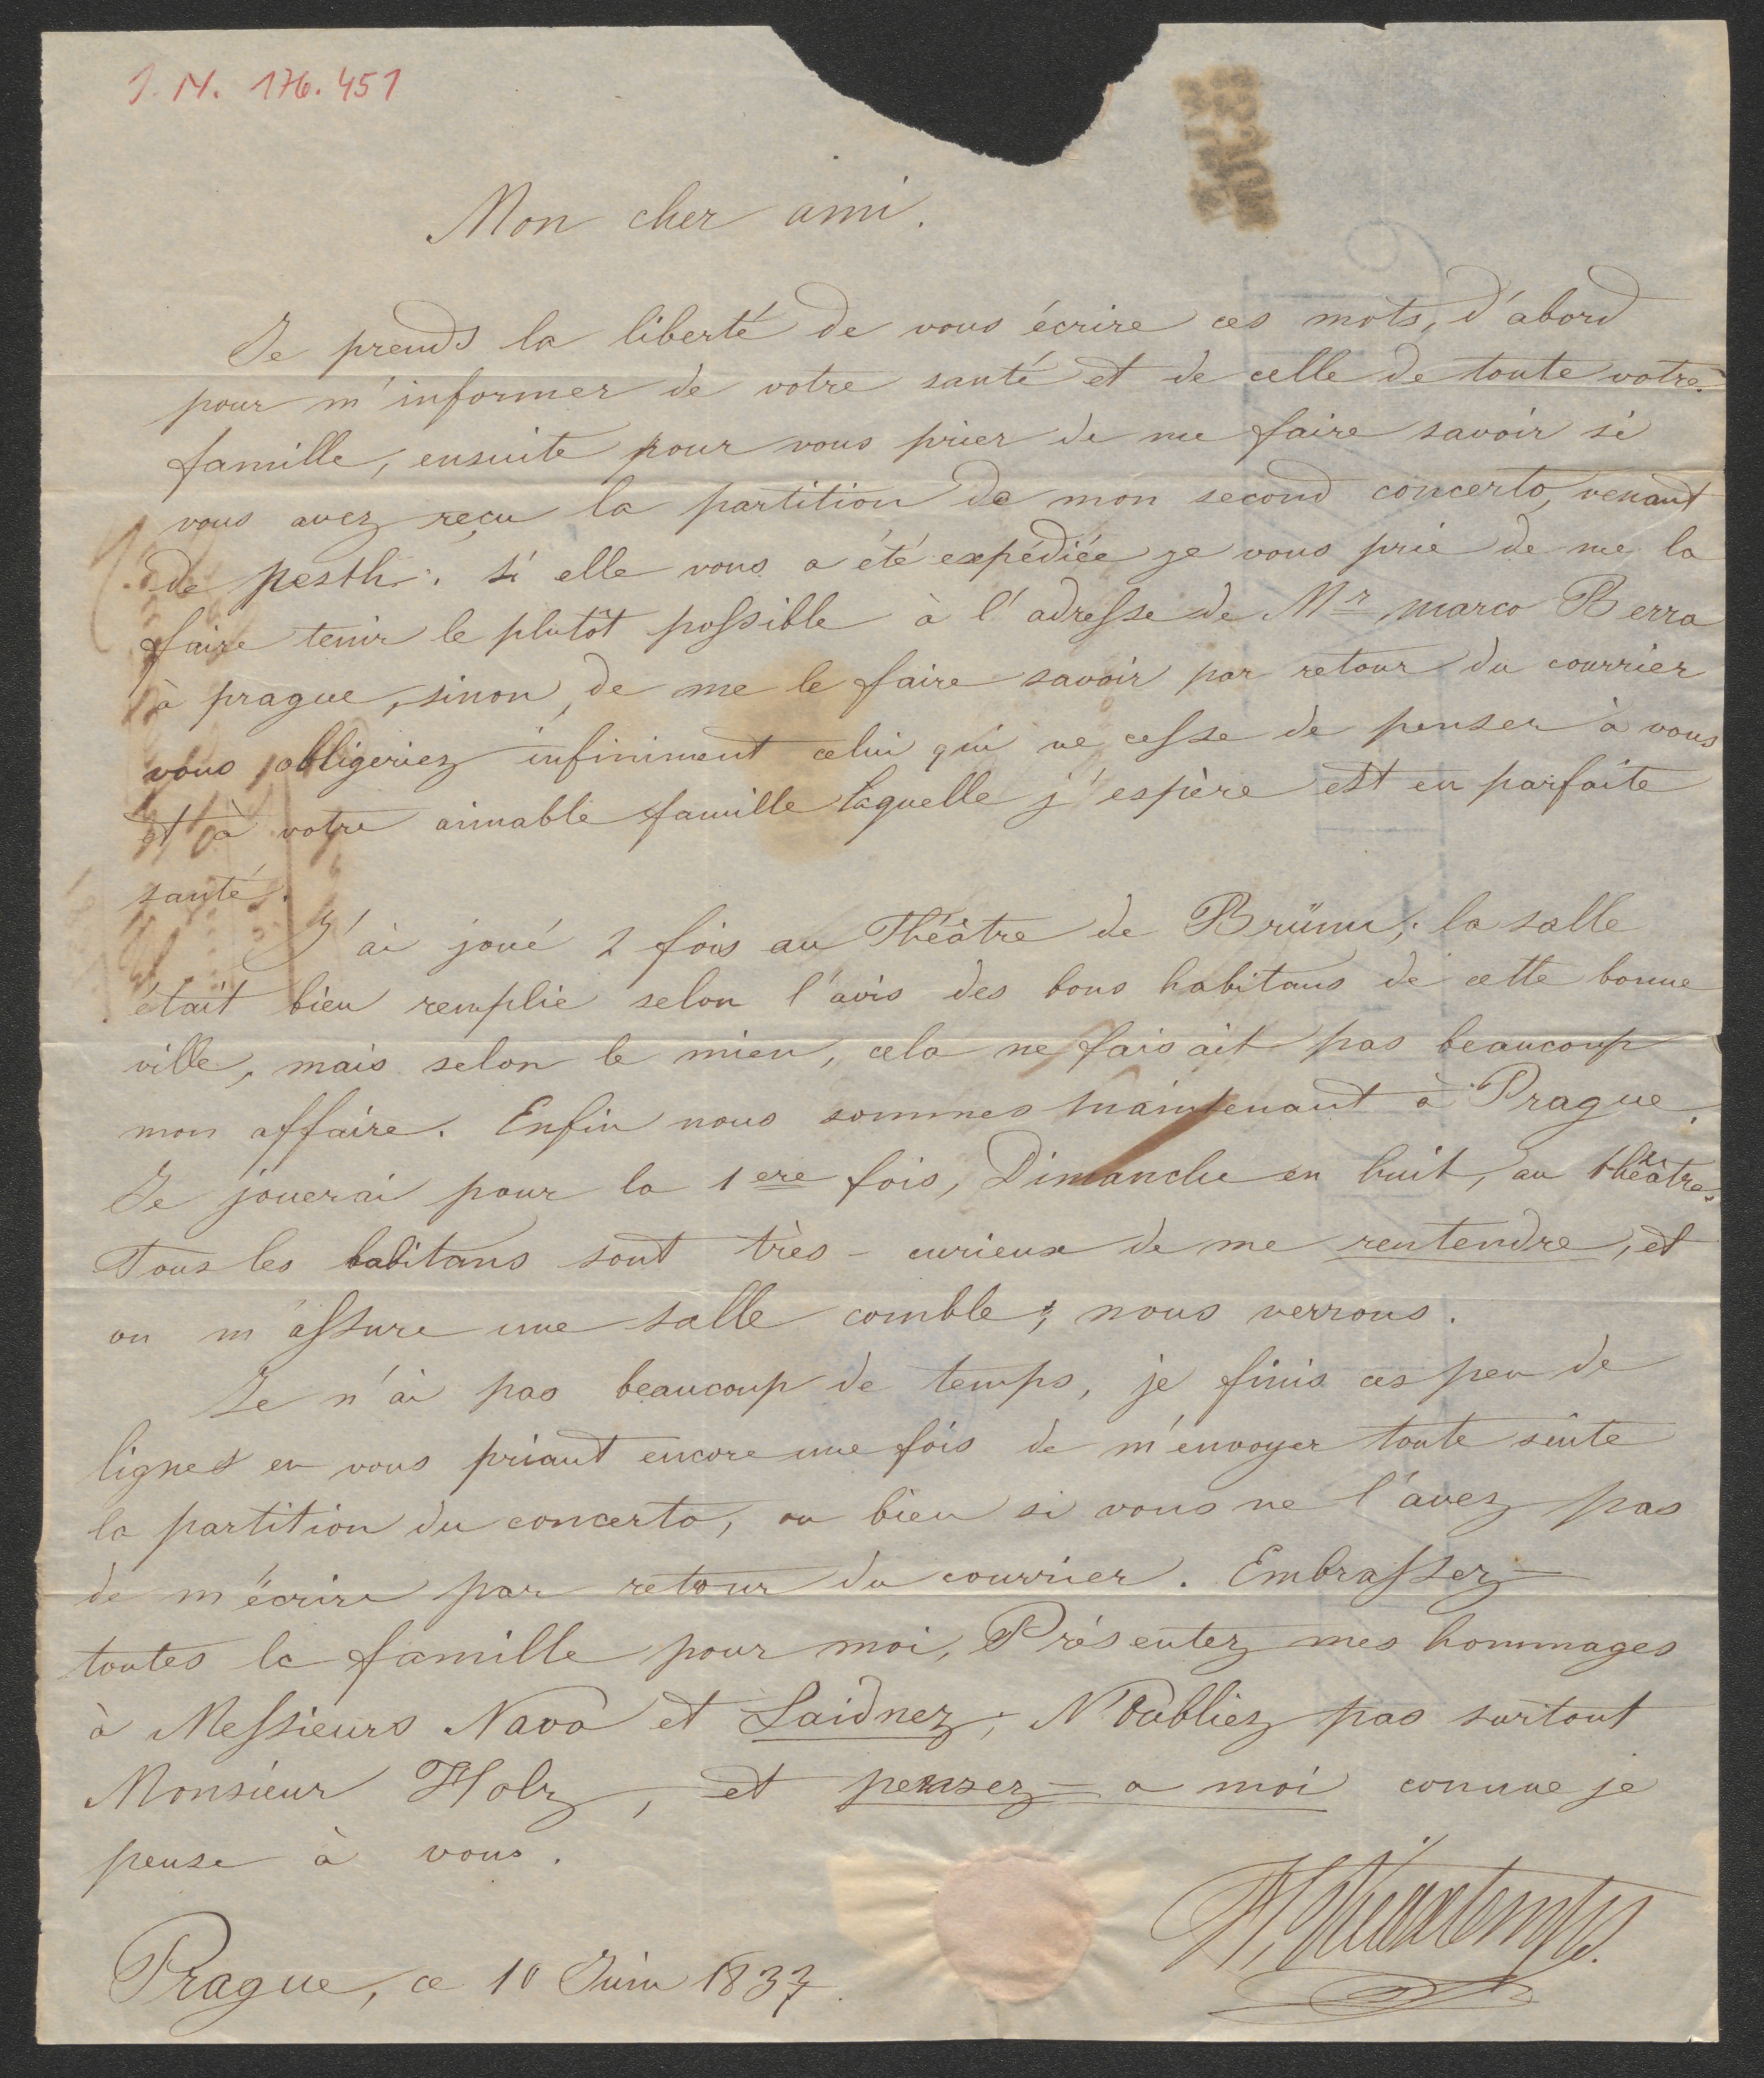 I. N. 176.451
Mon cher ami.
Je prends la liberté de vous écrire ces mots, d'abord
pour m'informer de votre santé et de celle de toute votre
famille, ensuite pour vous prier de me faire savoir si
vous avez reçu la partition de mon second concerto, venant
de pesth. si elle vous a été expédiée je vous prie de me la
faire tenir le plutôt possible à l'adresse de Mr marco Berra
à prague, sinon, de me le faire savoir par retour du courrier
vous obligeriez infiniment celui qui ne cesse de penser à vous
et à votre aimable famille laquelle j'espère est en parfaite
santé.
J'ai joué 2 fois au Théâtre de Brünn; la salle
était bien remplie selon l'avis des bons habitans de cette bonne
ville, mais selon le mien, cela ne faisait pas beaucoup
mon affaire. Enfin nous sommes maintenant à Prague.
Je jouerai pour la 1ere fois, Dimanche en huit, au théâtre.
Tous les habitans sont très-curieux de me rentendre, et
on m'assure une salle comble; nous verrons.
Je n'ai pas beaucoup de temps, je finis ces peu de
lignes en vous priant encore une fois de m'envoyer toute suite
la partition du concerto, ou bien si vous ne l'avez pas
de m'écrire par retour du courrier. Embrassez-
toutes la famille pour moi, Présentez mes hommages
à Messieurs Nava et Laidnez; N'oubliez pas surtout
Monsieur Holz, et pensez-a moi comme je
pense à vous.
H. Vieuxtemps.
Prague, ce 10 Juin 1837.